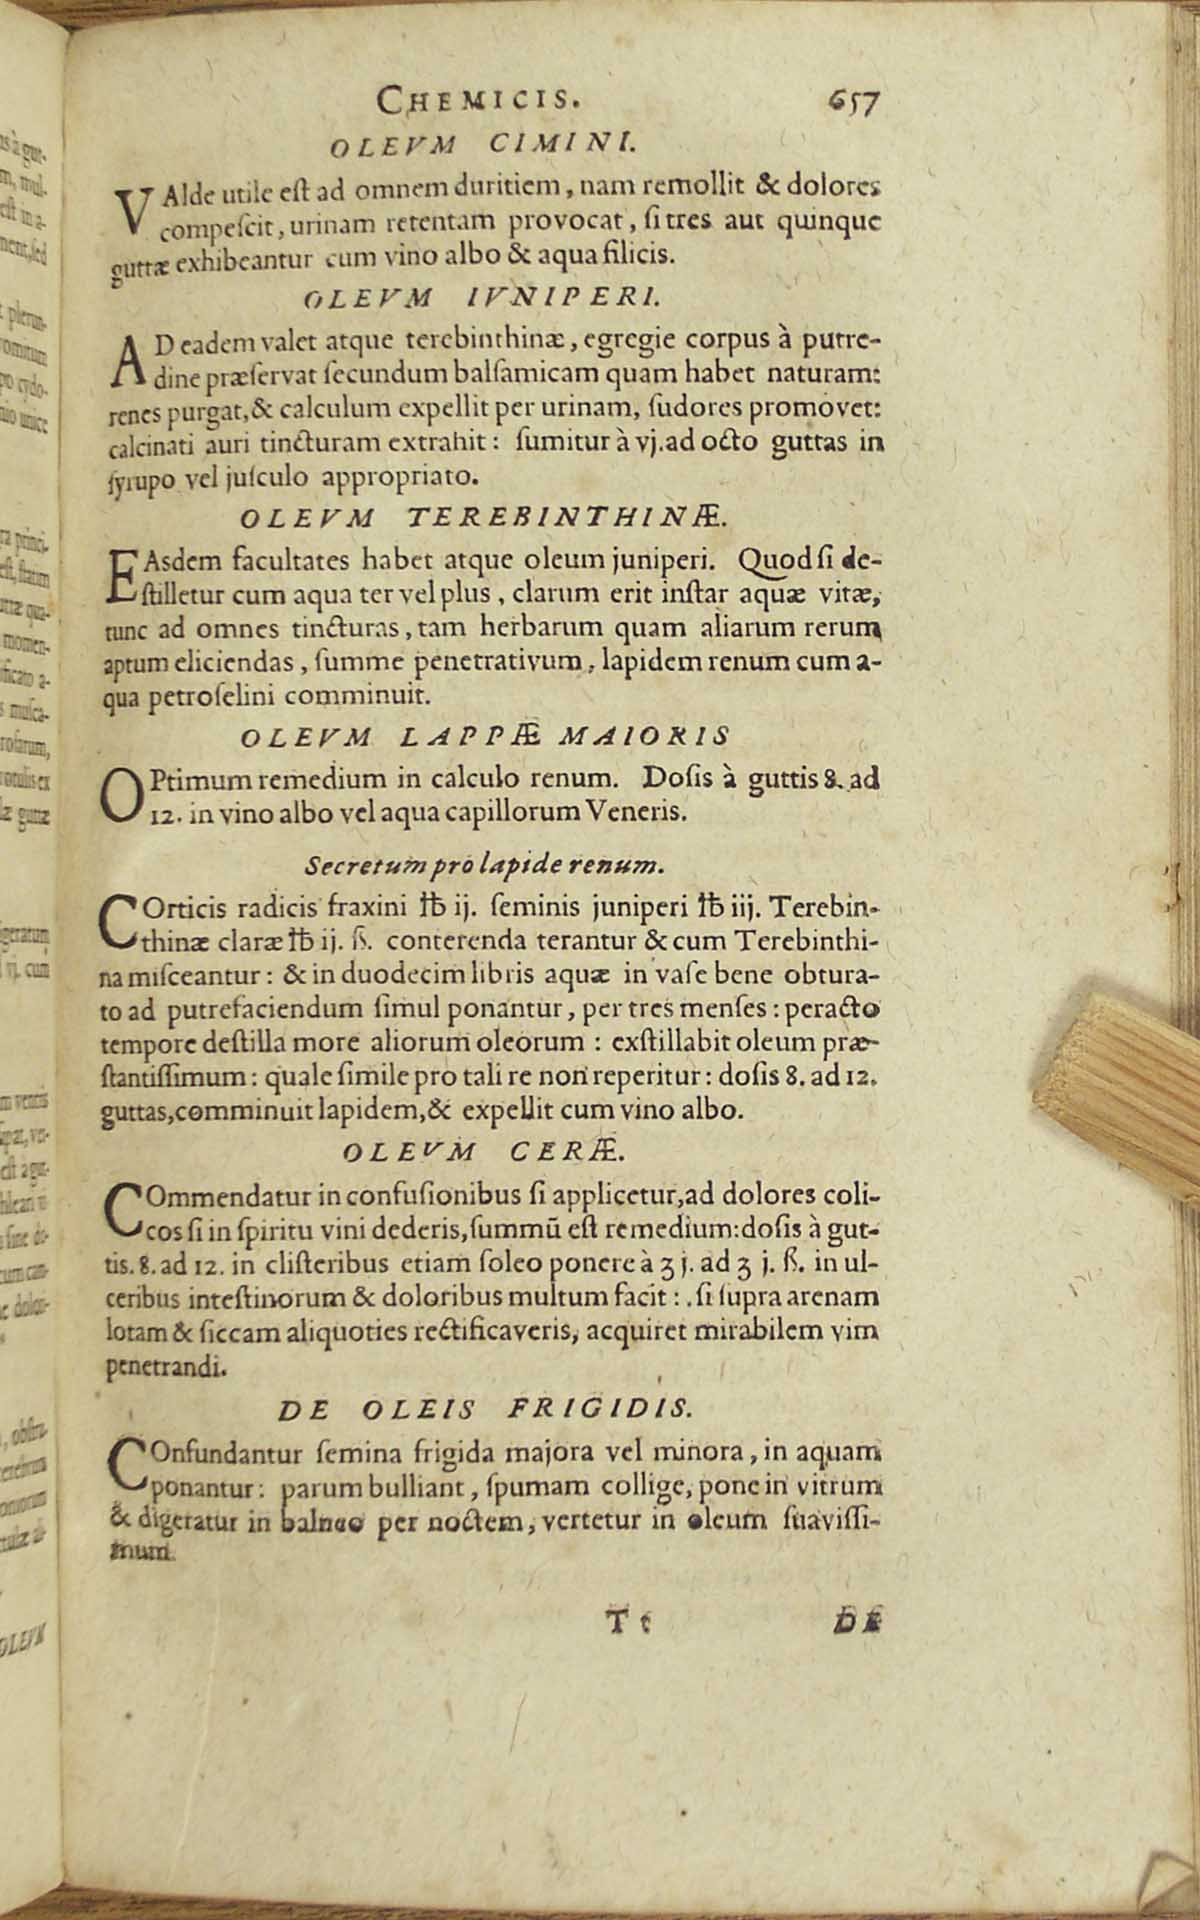 CHEMICIS. 657
OLEVM CIMINI.
VAlde utile est ad omnem duritiem, nam remollit & dolores
compescit, urinam retentam provocat, si tres aut quinque
guttæ exhibeantur cum vino albo & aqua filicis.
OLEVM IVNIPERI.
AD eadem valet atque terebinthinæ, egregie corpus à putre-
dine præservat secundum balsamicam quam habet naturam:
renes purgat, & calculum expellit per urinam, sudores promovet:
calcinati auri tincturam extrahit: sumitur à vj. ad octo guttas in
syrupo vel jusculo appropriato.
OLEVM TEREBINTHINÆ.
EAsdem facultates habet atque oleum juniperi. Quod si de-
stilletur cum aqua ter vel plus, clarum erit instar aquæ vitæ,
tunc ad omnes tincturas, tam herbarum quam aliarum rerum
aptum eliciendas, summe penetrativum, lapidem renum cum a-
qua petroselini comminuit.
OLEVM LAPPÆ MAIORIS
OPtimum remedium in calculo renum. Dosis à guttis 8. ad
12. in vino albo vel aqua capillorum Veneris.
Secretum pro lapide renum.
COrticis radicis fraxini ℔ ij. seminis juniperi ℔ iij. Terebin-
thinæ claræ ℔ ij. ß. conterenda terantur & cum Terebinthi-
na misceantur: & in duodecim libris aquæ in vase bene obtura-
to ad putrefaciendum simul ponantur, per tres menses: peracto
tempore destilla more aliorum oleorum: exstillabit oleum præ-
stantissimum: quale simile pro tali re non reperitur: dosis 8. ad 12.
guttas, comminuit lapidem, & expellit cum vino albo.
OLEVM CERÆ.
COmmendatur in confusionibus si applicetur, ad dolores coli-
cos si in spiritu vini dederis, summū est remedium: dosis à gut-
tis. 8. ad 12. in clisteribus etiam soleo ponere à ʒ j. ad ʒ j. ß. in ul-
ceribus intestinorum & doloribus multum facit: si supra arenam
lotam & siccam aliquoties rectificaveris, acquiret mirabilem vim
penetrandi.
DE OLEIS FRIGIDIS.
COnfundantur semina frigida majora vel minora, in aquam
ponantur: parum bulliant, spumam collige, pone in vitrum
& digeratur in balneo per noctem, vertetur in oleum suavissi-
mum.
Tt DE